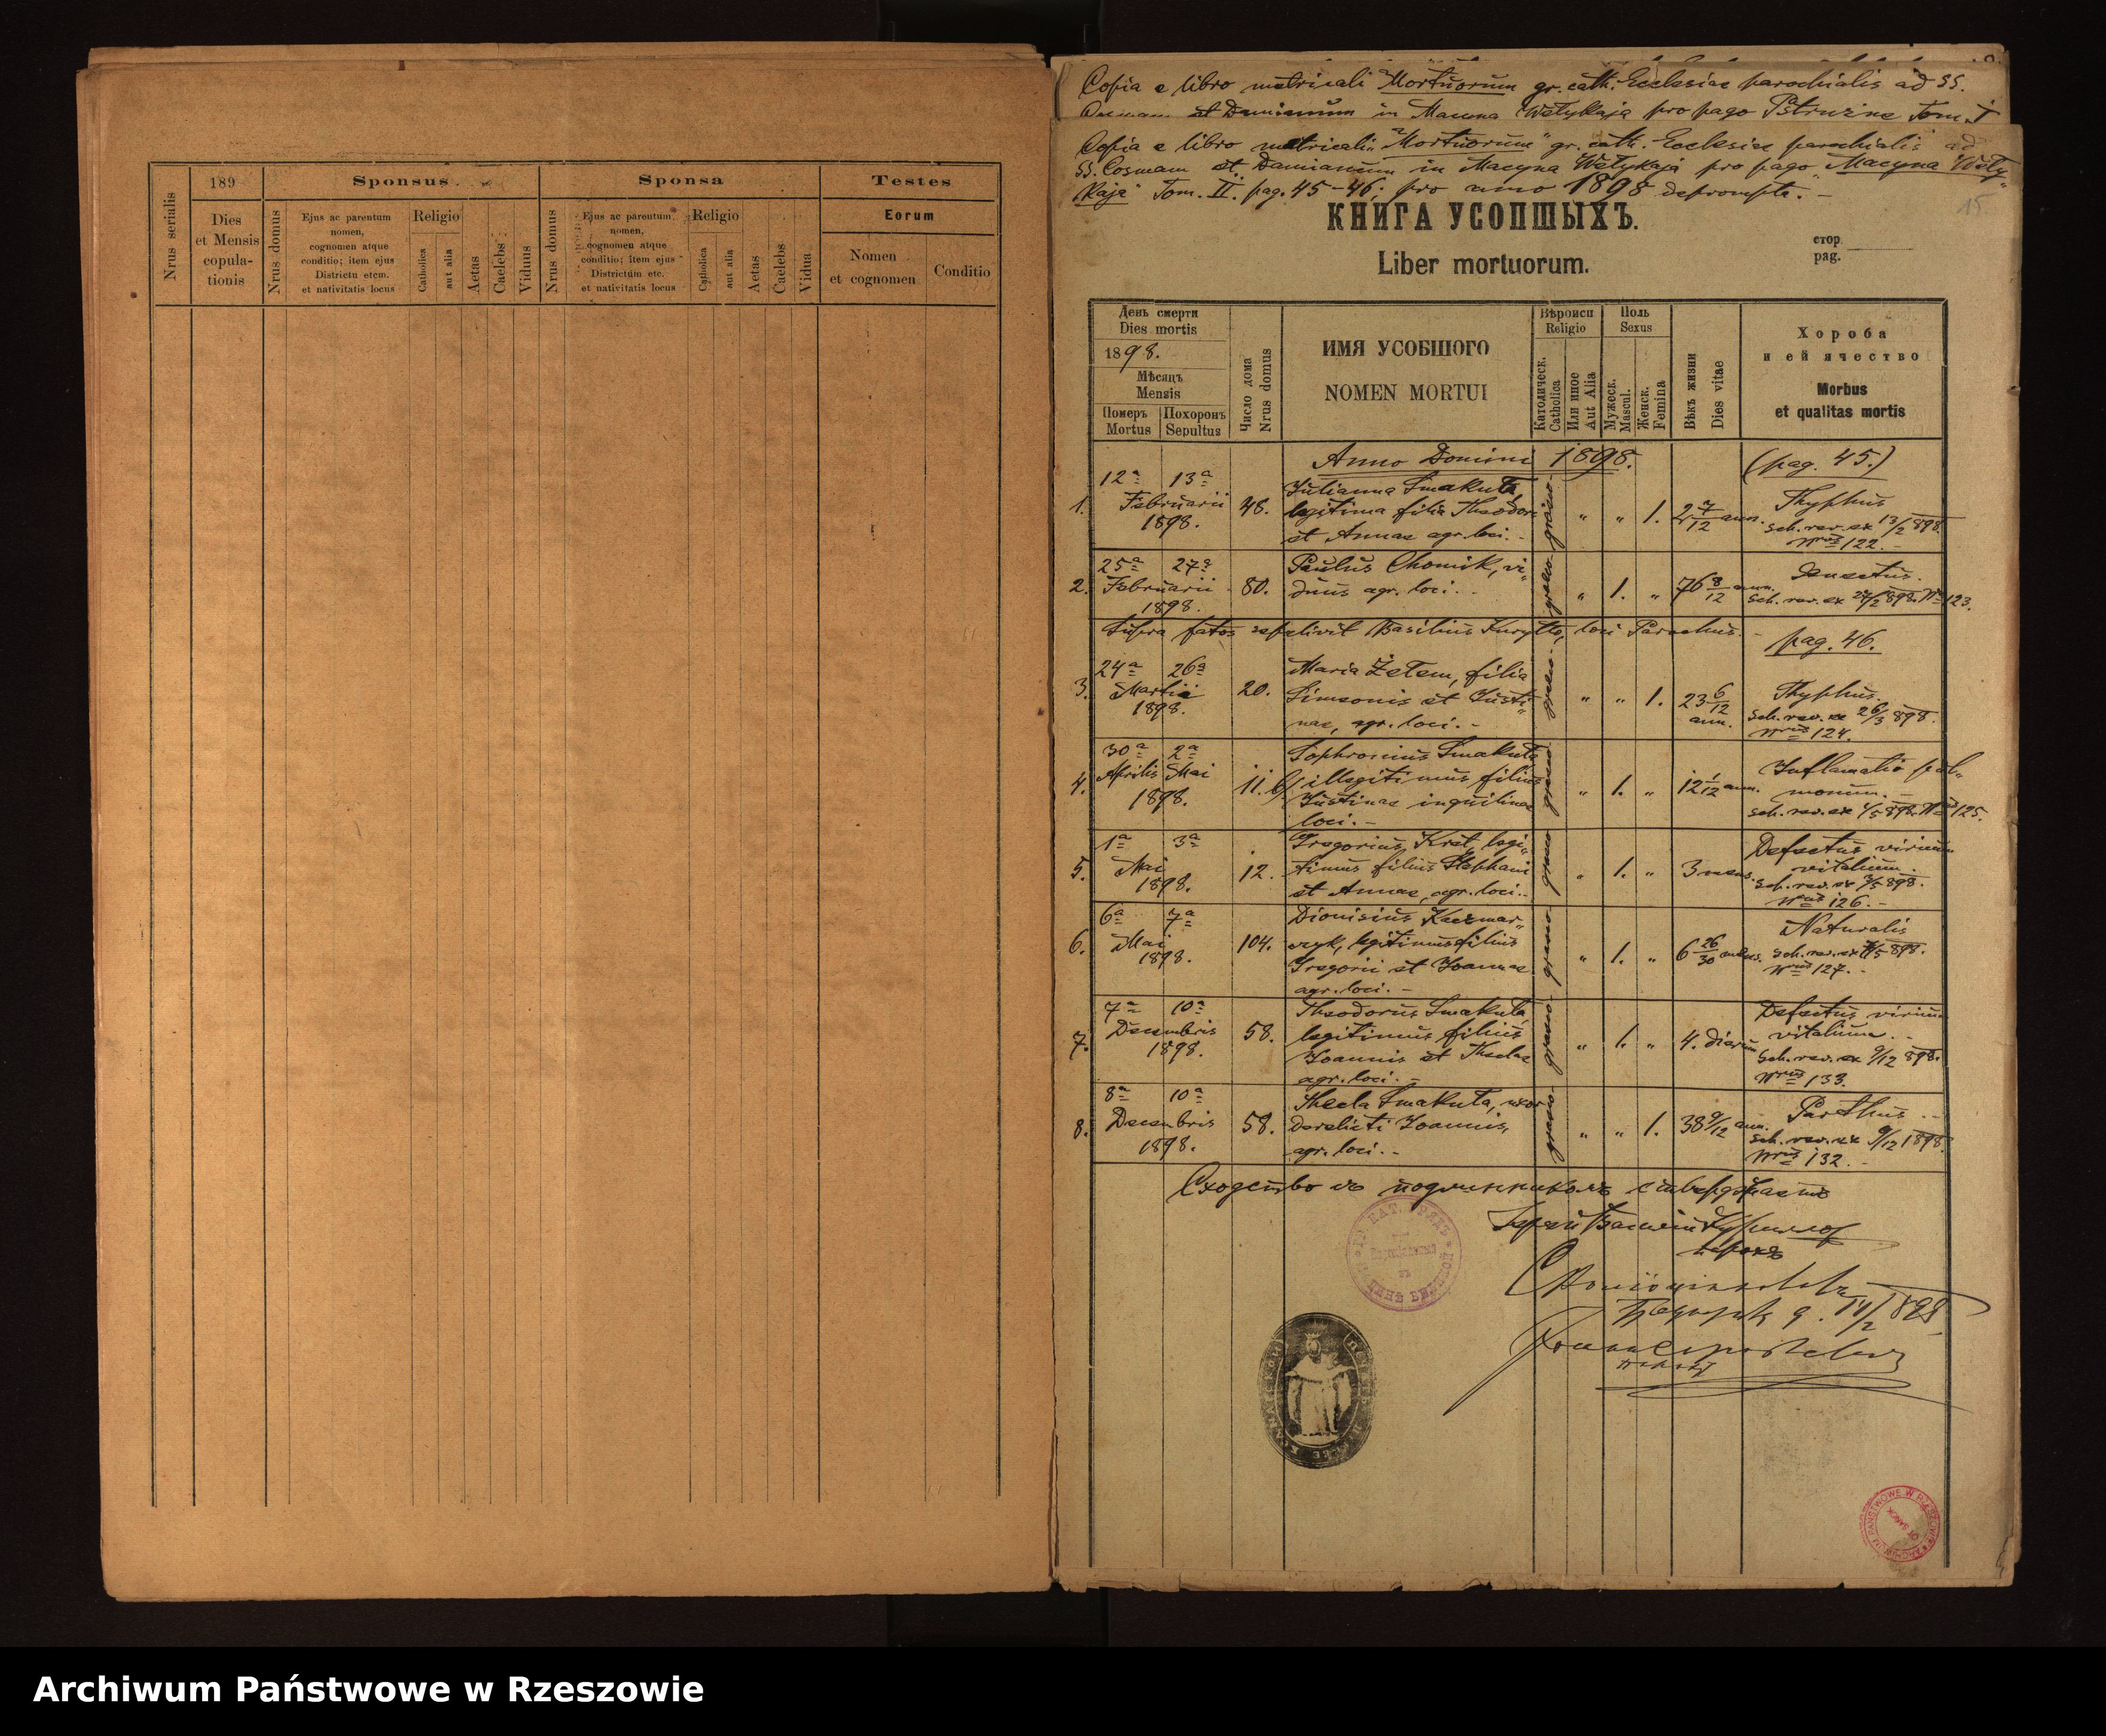 189
Sponsus
Sponsa
Testes
Nrus serialis
Dies
et Mensis
copula-
tionis
Nrus domus
Ejus ac parentum
nomen,
cognomen atque
conditio; item ejus
Districtu etcm.
et nativitatis locus
Religio
Catholica
aut alia
Aetas
Caelebs
Viduus
Nrus domus
Ejus ac parentum
nomen,
cognomen atque
conditio; item ejus
Districtum etc.
et nativitatis locus
Religio
Catholica
aut alia
Aetas
Caelebs
Vidua
Eorum
Nomen
et cognomen
Conditio
Copia e libro metricali Mortuorum gr. cath. Ecclesiae parochialis ad SS.
et Damianum in Macyna Wełykaja pro pago Pstruzne Tom. I
Copia e libro metricali „Mortuorum" gr. cath. Ecclesiae parochialis ad
SS. Cosmam et Damianum in Macyna Wełykaja pro pago „Macyna Wełykaja" Tom. II. pag. 45-46. pro anno 1898 deprompta. -
15
КНИГА УСОПШЫХЪ.
Liber mortuorum.
стор.
pag.
День смерти
Dies mortis
1898.
Мѣсяцъ
Mensis
Померъ
Mortus
Похоронъ
Sepultus
Число дома
Nrus domus
ИМЯ УСОБШОГО
NOMEN MORTUI
Вѣроиси
Religio
Католическ.
Catholica
Или иное
Aut Alia
Поль
Sexus
Мужеск.
Mascul.
Женск.
Femina
Вѣкъ жизни
Dies vitae
Хороба
и ей ячество
Morbus
et qualitas mortis
Anno Domini 1898. (pag. 45.)
1. 12a 13a
Februarii
1898.
48.
Julianna Smakuła,
legitima filia Theodori
et Annae agr. loci. -
graeco-
„ „ 1.
2 7/12 ann.
Thyphus
sch. rev. ex 13/2 898.
Nrus 122. -
2. 25a 27a
Februarii
1898.
80.
Paulus Chomik, vi-
duus agr. loci. -
graeco-
„ 1. „
76 8/12 ann.
Senectus.
Sch. rev. ex 27/2 898. Nrus 123.
Supra fatos sepelivit Basilius Kuryłło, loci Parochus. -
pag. 46.
3. 24a 26a
Martii
1898.
20.
Maria Żetem, filia
Simeonis et Justi-
nae, agr. loci. -
graeco-
„ „ 1.
23 6/12
ann.
Thyphus.
Sch. rev. ex 26/3 898.
Nrus 124.
4. 30a 2a
Aprilis Mai
1898.
11. b/
Sophronius Smakuła
illegitimus filius
Justinae inquilinae
loci. -
graeco
„ 1. „
12 1/12 ann.
Inflamatio pul-
monum. -
sch. rev. ex 1/5 898. Nrus 125.
5. 1a 3a
Mai
1898.
12.
Gregorius Kret, legi-
timus filius Stephani
et Annae, agr. loci. -
graeco
„ 1. „
3 mens.
Defectus virium
vitalium.
Sch. rev. ex 3/5 898.
Nrus 126. -
6. 6a 7a
Mai
1898.
104.
Dionisius Kaczmar-
czyk, legitimus filius
Gregorii et Joannae
agr. loci. -
graeco-
„ 1. „
6 26/30 mens.
Naturalis
Sch. rev. ex 7/5 898.
Nrus 127. -
7. 7a 10a
Decembris
1898.
58.
Theodorus Smakuła,
legitimus filius
Joannis et Theclae
agr. loci. -
graeco-
„ 1. „
4. dierum
Defectus virium
vitalium. -
Sch. rev. ex 9/12 898.
Nrus 133.
8. 8a 10a
Decembris
1898.
58.
Thecla Smakuła, uxor
derelicti Joannis,
agr. loci. -
graeco-
„ „ 1.
38 9/12 ann.
Parthus. -
Sch. rev. ex 9/12 1898
Nrus 132. -
Сходство съ подлинникомъ
парохъ
ARCHIWUM PAŃSTWOWE W RZESZOWIE
OT SANOK
Archiwum Państwowe w Rzeszowie